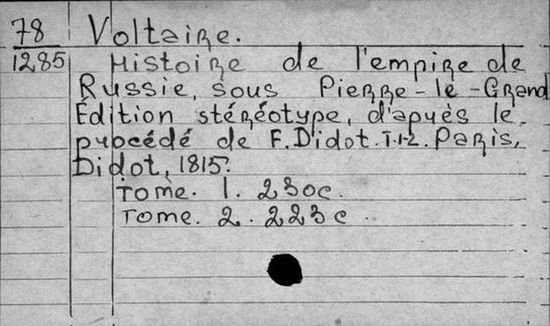 78 Voltaire.
1285 Histoire de l'empire de
Russie, sous Pierre-le-Grand
Édition stéréotype, d'après le
procédé de F. Didot. T.1-2. Paris,
Didot, 1815.
Tome. 1. 230c.
Tome. 2. 223 c.